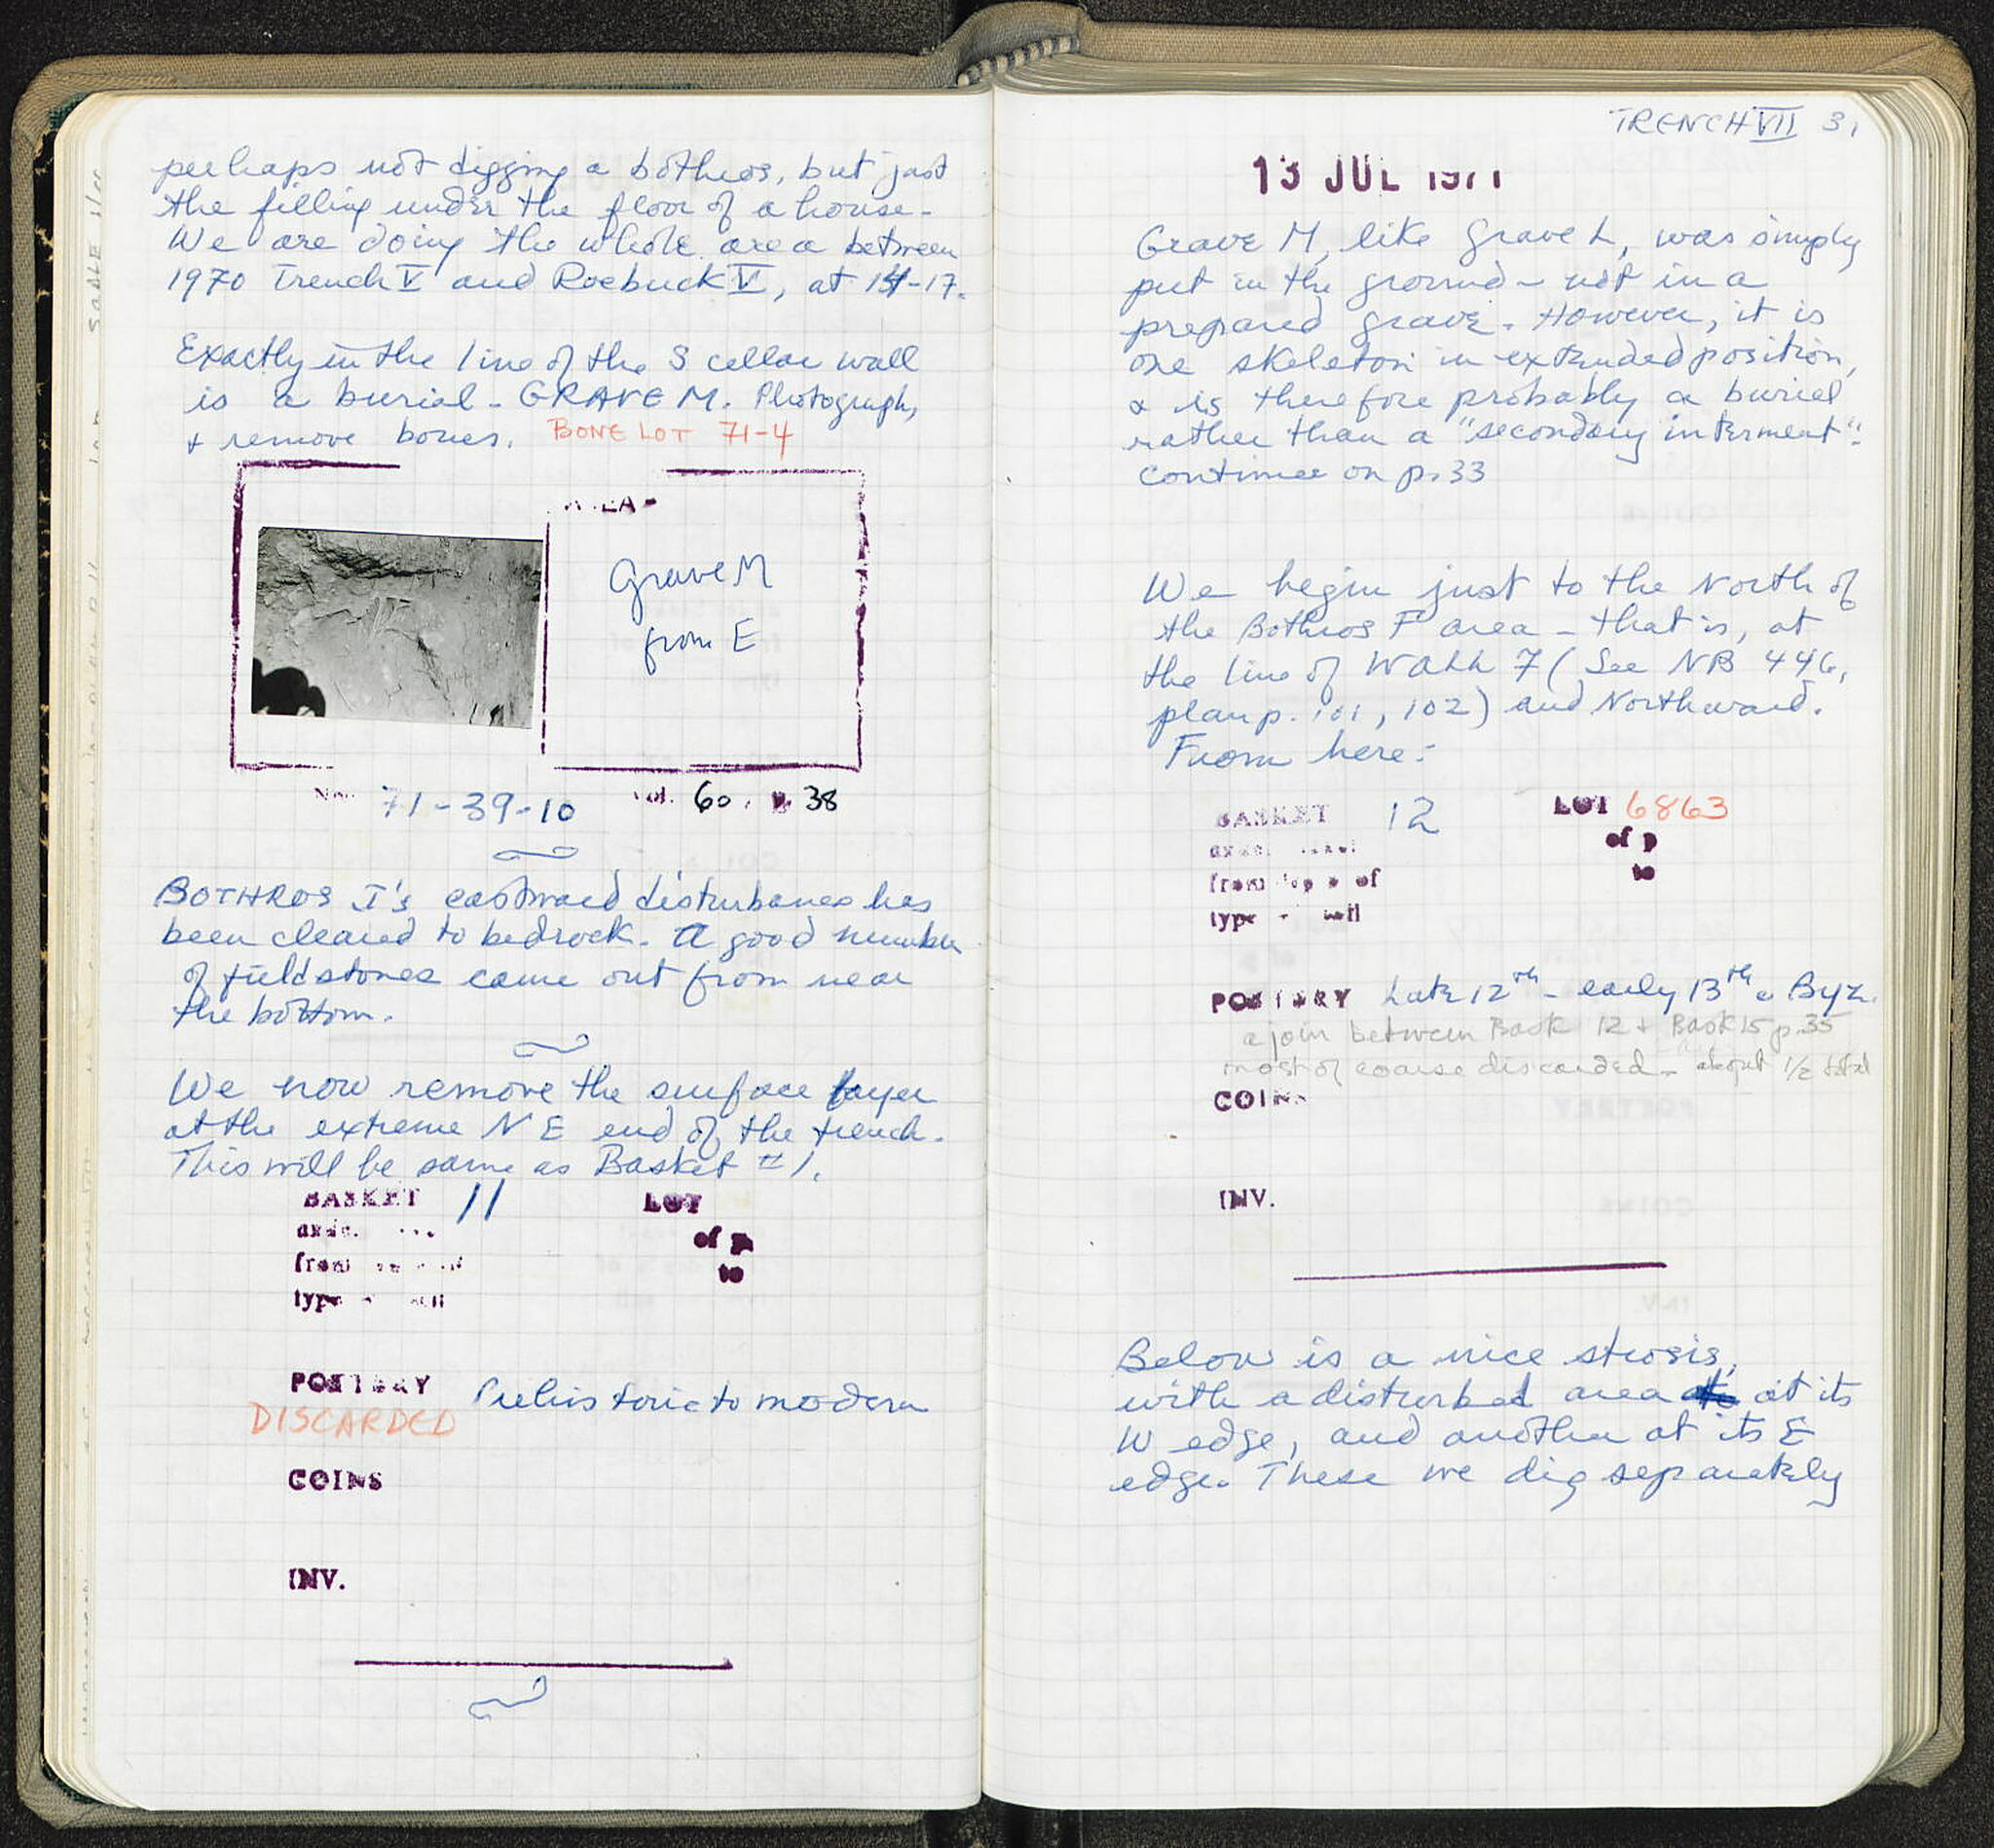 perhaps not digging a bothros, but just
the filling under the floor of a house.
We are doing the whole area between
1970 Trench V and Roebuck V, at 14-17.
Exactly in the line of the S cellar wall
is a burial - GRAVE M. Photograph,
+ remove bones. BONE LOT 71-4
Grave M
from E
No. 71-39-10 vol. 60, p. 38
BOTHROS I's eastward disturbance has
been cleared to bedrock. A good number
of fieldstones came out from near
the bottom.
We now remove the surface layer
at the extreme NE end of the trench.
This will be same as Basket #1.
BASKET 11 LOT
of p
to
from
type soil
POTTERY Prehistoric to modern
DISCARDED
COINS
INV.
TRENCH VII 31
13 JUL 1971
Grave M, like grave L, was simply
put in the ground - not in a
prepared grave. However, it is
one skeleton in extended position,
& is therefore probably a burial
rather than a "secondary interment".
continue on p. 33
We begin just to the North of
the Bothros F area - that is, at
the line of WALL 7 (See NB 446,
plan p. 101, 102) and Northward.
From here:
BASKET 12 LOT 6863
of p
to
from of
type soil
POTTERY Late 12th - early 13th c Byz.
a join between Bask 12 + Bask 15 p. 35
most of coarse discarded - about 1/2 total
COINS
INV.
Below is a nice strosis,
with a disturbed area at its
W edge, and another at its E
edge. These we dig separately